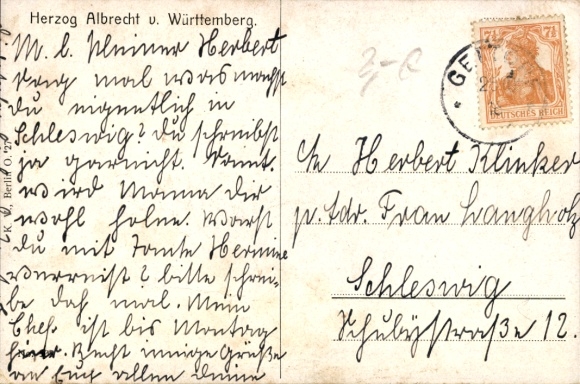 Herzog Albrecht v. Württemberg.
M. l. kleiner Herbert
sag mal was machst
du eigentlich in
Schleswig? du schreibst
ja garnicht. Sonnt.
wird Mama dir
wohl holen. Warst
du mit Tante Hermine
verreist? bitte schrei-
be doch mal. Mein
Chef ist bis Montag
hier. Recht innige Grüße
an Euch allen Deine
K. Berlin O. 27
3,- 
7½ 7½
DEUTSCHES REICH
GE
An Herbert Klinker
p. Adr. Frau Langholz
Schleswig
Schubystraße 12.